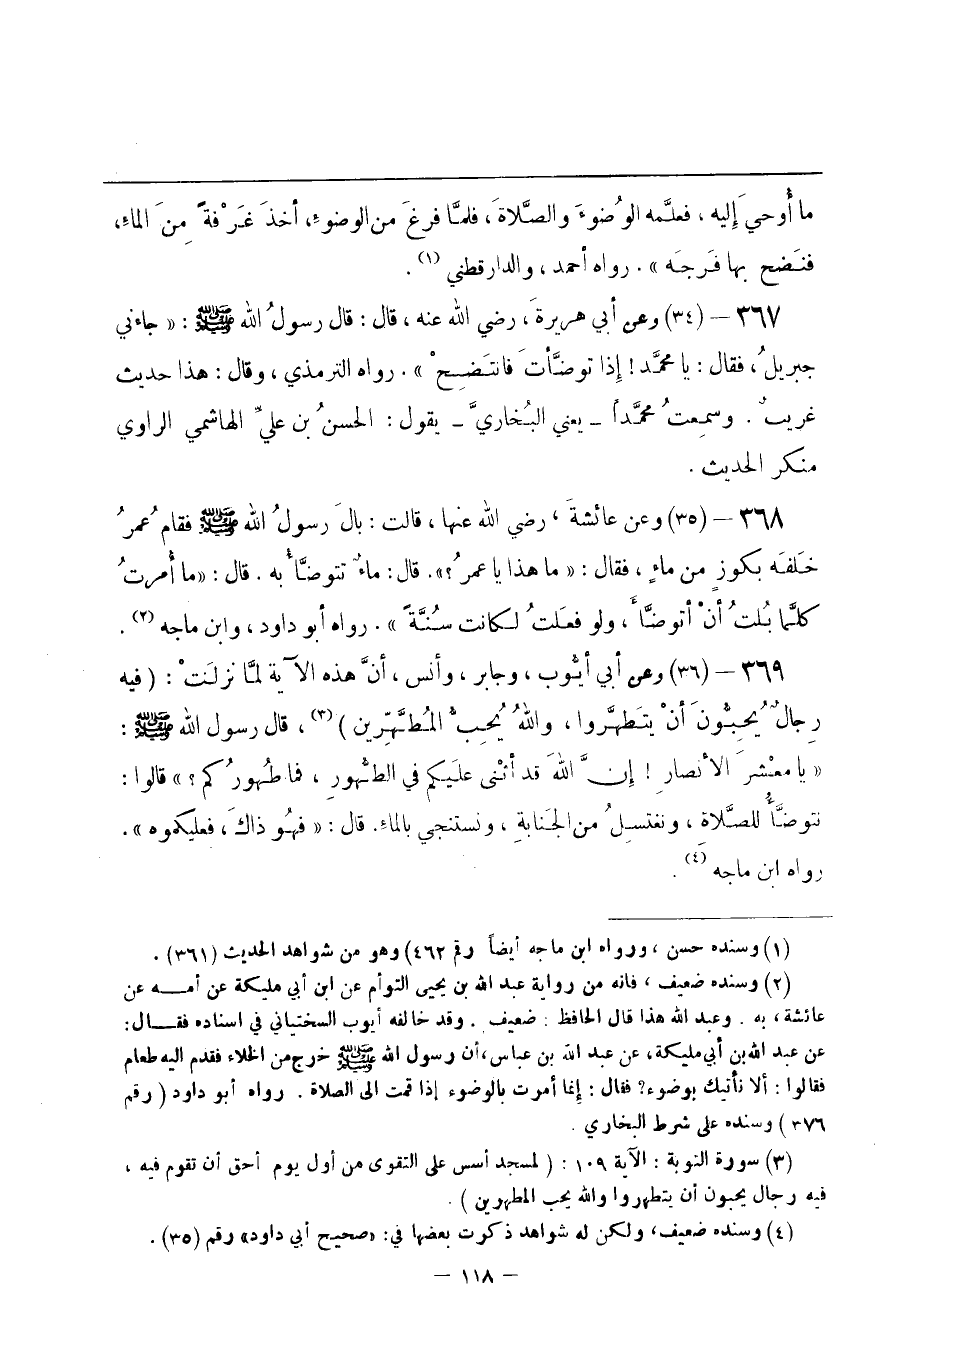 ما أُوحيَ إليه ، فعلَّمه الوُضوءَ والصَّلاةَ ، فلمَّا فرغَ من الوضوءِ، أخذَ غَرْفةً مِنَ الماءِ،
فنَضَح بها فَرجَه » . رواه أحمد ، والدارقطني (١) .
٣٦٧ – (٣٤) وعن أبي هريرةَ ، رضي الله عنه ، قال : قال رسولُ الله ﷺ : « جاءني
جبريلُ ، فقال : يا محمَّد ! إِذا توضَّأتَ فانتَضِحْ » . رواه الترمذي ، وقال : هذا حديث
غريبٌ . وسمِعتُ محمَّداً – يعني البُخاريَّ – يقول : الحسنُ بن عليٍّ الهاشمي الراوي
منكر الحديث .
٣٦٨ – (٣٥) وعن عائشةَ ، رضي الله عنها ، قالت : بالَ رسولُ الله ﷺ فقام عُمرُ
خَلفَه بكوزٍ من ماءٍ ، فقال : « ما هذا يا عمرُ ؟». قال : ماءٌ تتوضَّأُ به . قال : «ما أُمرتُ
كلَّما بُلتُ أنْ أتوضَّأَ ، ولو فعَلتُ لكانت سُنَّةً » . رواه أبو داود ، وابن ماجه (٢) .
٣٦٩ – (٣٦) وعن أبي أيُّوب ، وجابر ، وأنس ، أنَّ هذه الآية لمَّا نزلَتْ : ( فيه
رِجالٌ يُحِبُّونَ أنْ يتَطهَّروا ، واللهُ يُحِبُّ المُطَّهِّرين ) (٣) ، قال رسول الله ﷺ :
« يا معْشرَ الأنصارِ ! إِنَّ اللهَ قد أثنى علَيكم في الطُّهورِ ، فما طُهورُكم ؟ » قالوا :
نتوضَّأُ للصَّلاة ، ونغتسلُ من الجَنابةِ ، ونستنجي بالماءِ. قال : « فهُو ذاكَ ، فعليكموه » .
رواه ابن ماجه (٤) .
(١) وسنده حسن ، ورواه ابن ماجه أيضاً رقم ٤٦٢) وهو من شواهد الحديث (٣٦١) .
(٢) وسنده ضعيف ، فانه من رواية عبد الله بن يحيى التوأم عن ابن أبي مليكة عن أمه عن
عائشة ، به . وعبد الله هذا قال الحافظ : ضعيف . وقد خالفه أيوب السختياني في اسناده فقال :
عن عبد الله بن أبي مليكة ، عن عبد الله بن عباس، أن رسول الله ﷺ خرج من الخلاء فقدم اليه طعام
فقالوا : ألا نأتيك بوضوء؟ فقال : إِنما أمرت بالوضوء إذا قمت الى الصلاة . رواه أبو داود ( رقم
٣٧٦ ) وسنده على شرط البخاري .
(٣) سورة التوبة : الآية ١٠٩ : ( لمسجد أسس على التقوى من أول يوم أحق أن تقوم فيه ،
فيه رجال يحبون أن يتطهروا والله يحب المطهرين ) .
(٤) وسنده ضعيف، ولكن له شواهد ذكرت بعضها في: «صحيح أبي داود» رقم (٣٥) .
– ١١٨ –